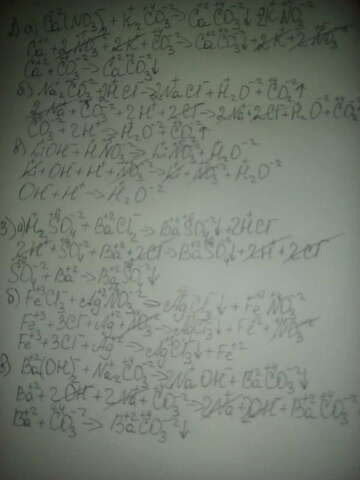 2) а) Ca(NO3)2 + K2CO3 → CaCO3↓ 2KNO3
Ca + 2NO3 + 2K + CO3 → CaCO3↓ + 2K + 2NO3
Ca + CO3 → CaCO3↓
б) Na2CO3 + 2HCl → 2NaCl + H2O + CO2↑
2Na + CO3 + 2H + 2Cl → 2Na + 2Cl + H2O + CO2
CO3 + 2H → H2O + CO2↑
в) LiOH + HNO3 → LiNO3 + H2O
Li + OH + H + NO3 → Li + NO3 + H2O
OH + H → H2O
3) а) H2SO4 + BaCl2 → BaSO4↓ + 2HCl
2H + SO4 + Ba + 2Cl → BaSO4↓ + 2H + 2Cl
SO4 + Ba → BaSO4↓
б) FeCl3 + AgNO3 → AgCl↓ + FeNO3
Fe + 3Cl + Ag + NO3 → AgCl3↓ + Fe + NO3
Fe + 3Cl + Ag → AgCl3↓ + Fe
в) Ba(OH)2 + Na2CO3 → 2NaOH + BaCO3↓
Ba + 2OH + 2Na + CO3 → 2Na + 2OH + BaCO3
Ba + CO3 → BaCO3↓